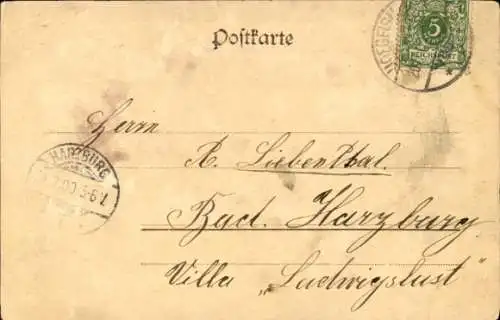 Postkarte
5
REICHSPOST
Herrn
A. Liebenthal.
Bad. Harzburg
Villa „Ludwigslust“
HARZBURG
5-6 V.